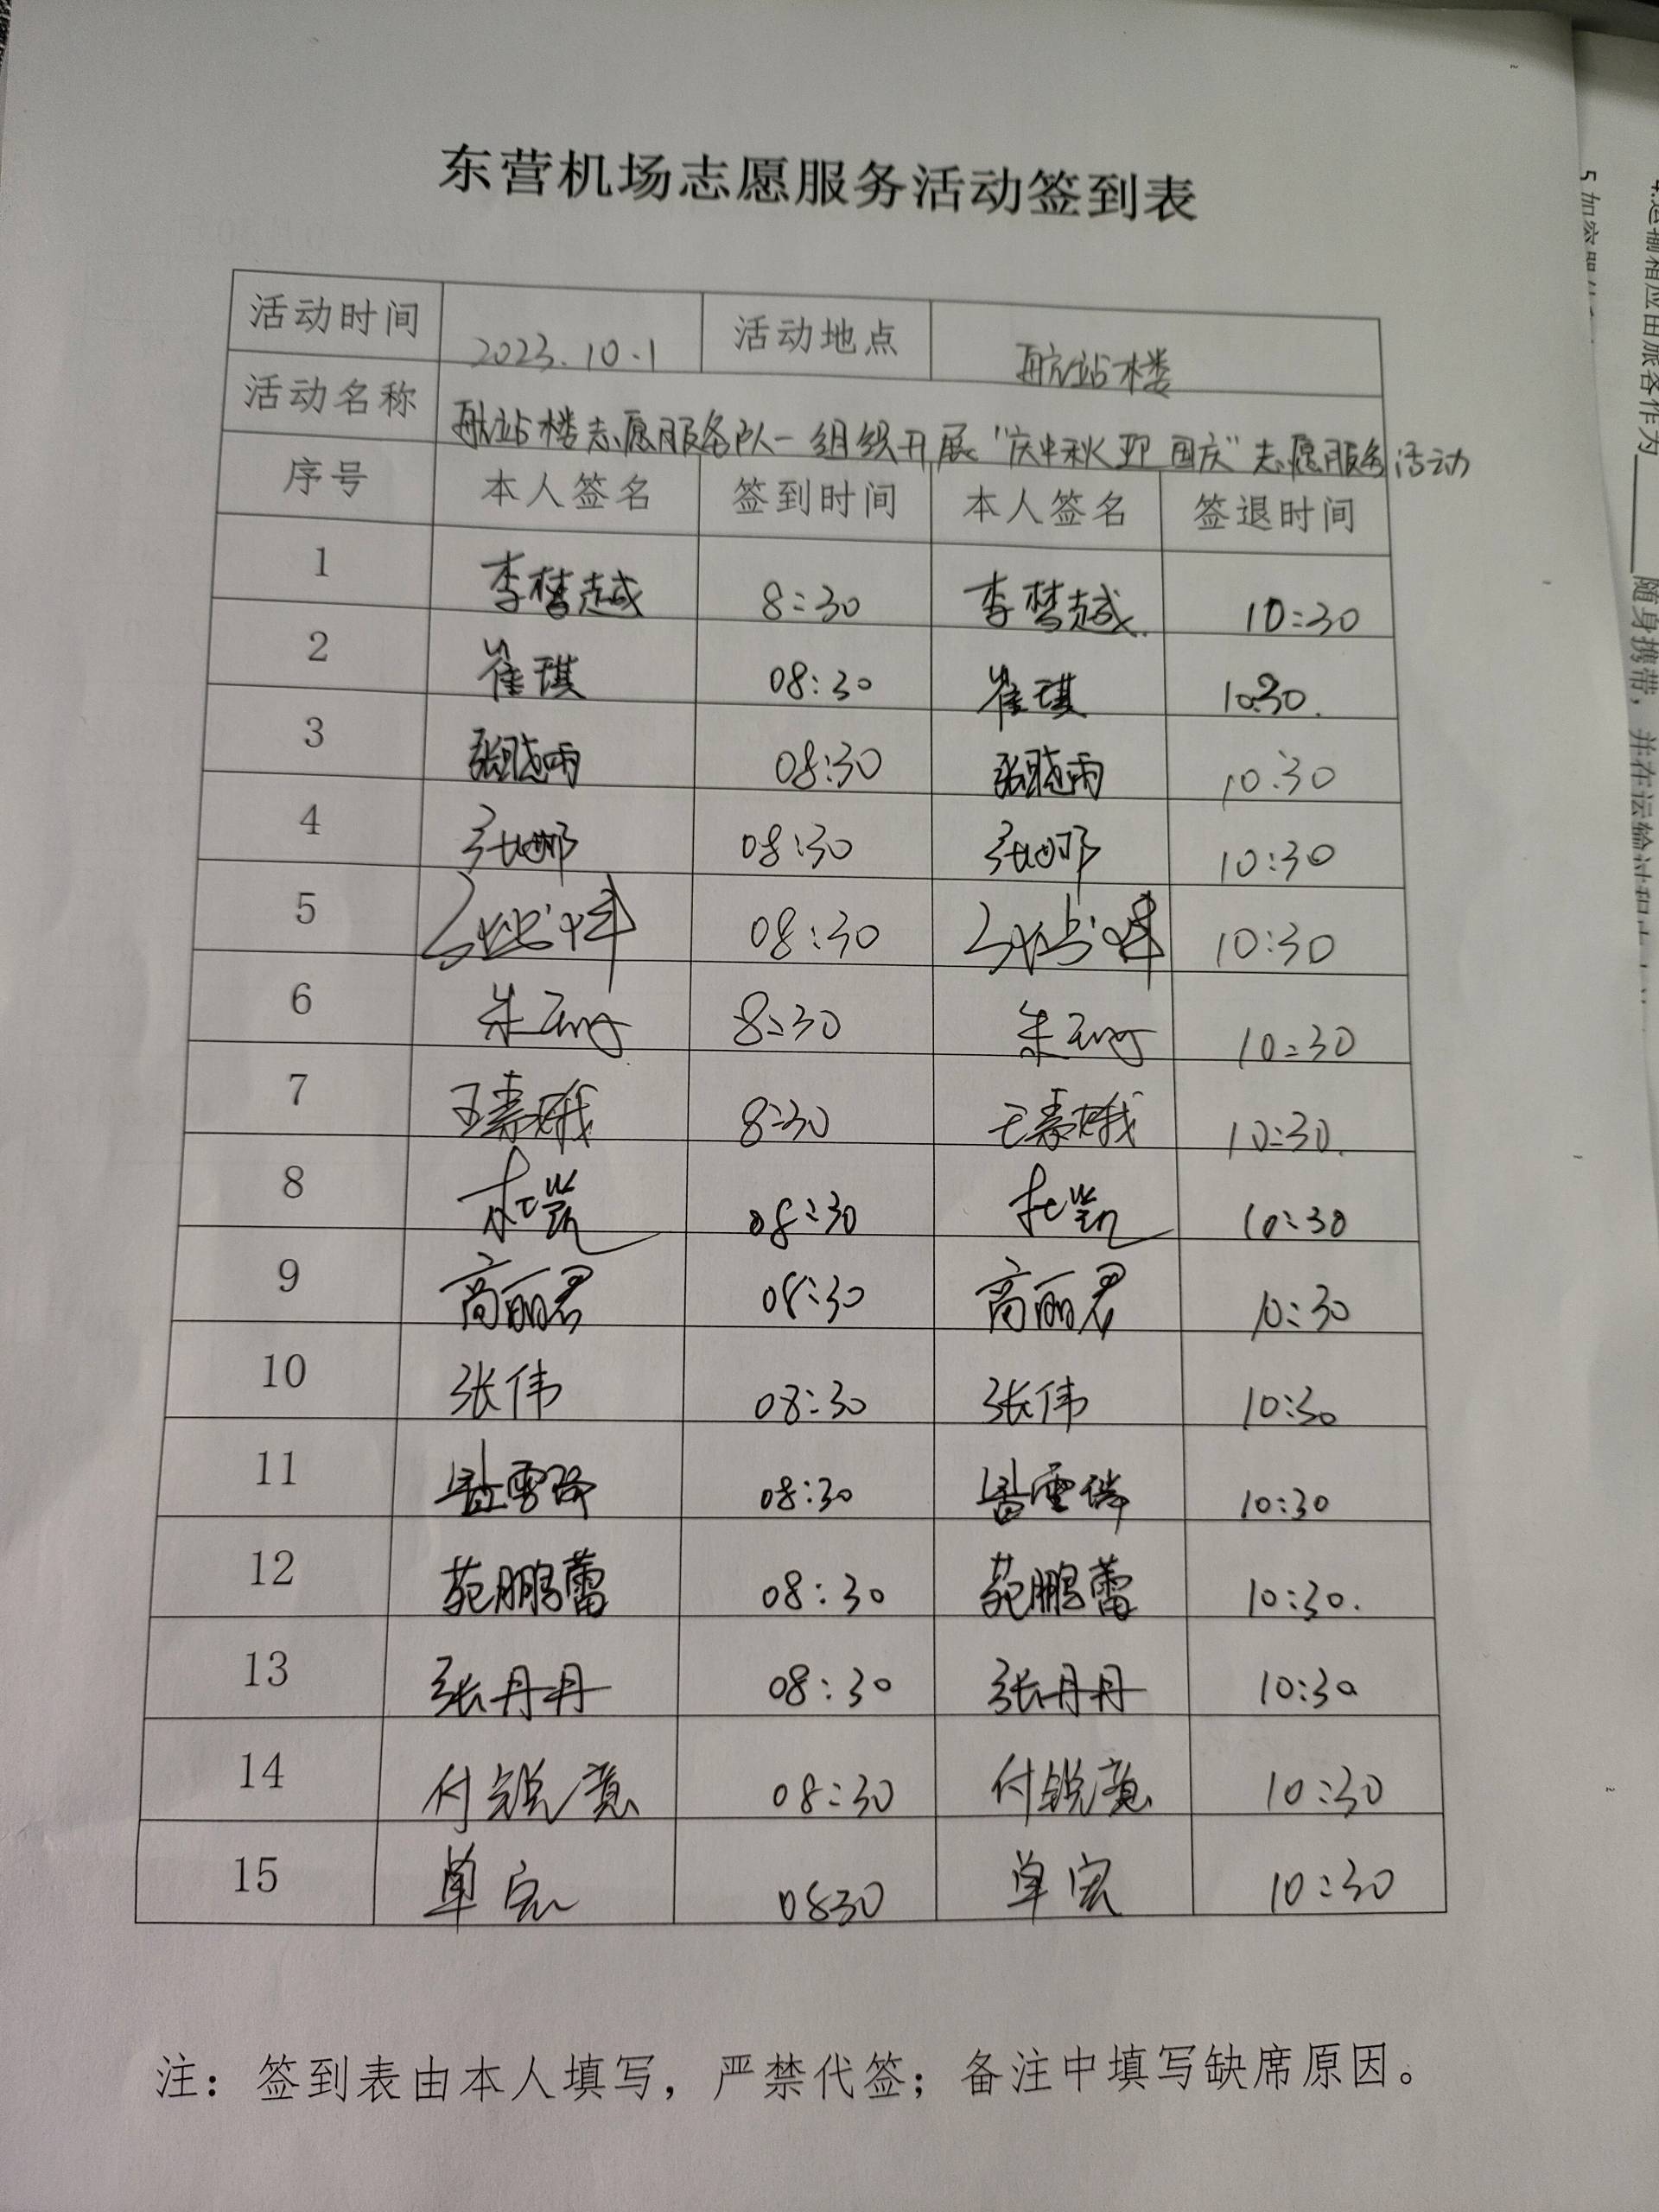 东营机场志愿服务活动签到表
活动时间 2023.10.1 活动地点 航站楼
活动名称 航站楼志愿服务队一组织开展“庆中秋 迎国庆”志愿服务活动
序号 本人签名 签到时间 本人签名 签退时间
1 李梦越 8:30 李梦越. 10:30
2 崔琪 08:30 崔琪 10:30.
3 张晓雨 08:30 张晓雨 10:30
4 张娜 08:30 张娜 10:30
5 08:30 10:30
6 朱 8:30 朱 10:30
7 王素娥 8:30 王素娥 10:30.
8 凯 08:30 凯 10:30
9 高丽君 08:30 高丽君 10:30
10 张伟 08:30 张伟 10:30
11 08:30 10:30
12 苑鹏蕾 08:30 苑鹏蕾 10:30.
13 张丹丹 08:30 张丹丹 10:30
14 付锐意 08:30 付锐意 10:30
15 单宏 0830 单宏 10:30
注：签到表由本人填写，严禁代签；备注中填写缺席原因。
随身携带，并在运输过程中